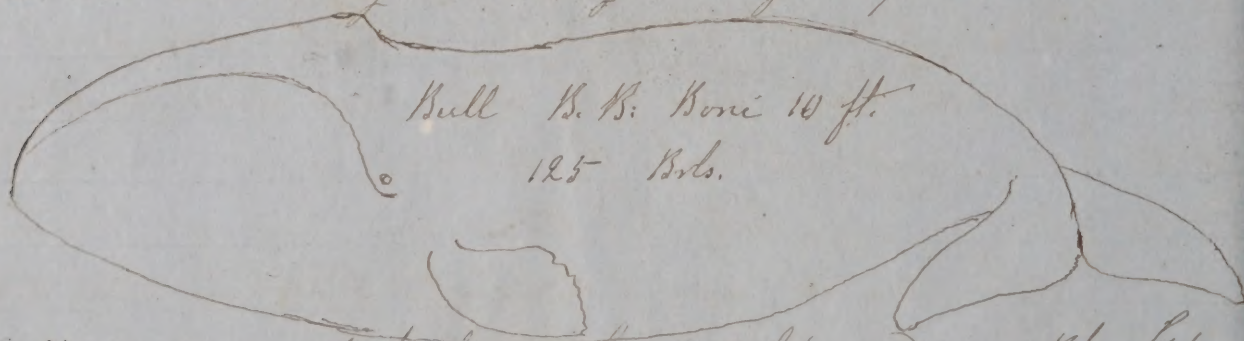 Bull B. B: Bone 10 ft.
125 Brls.